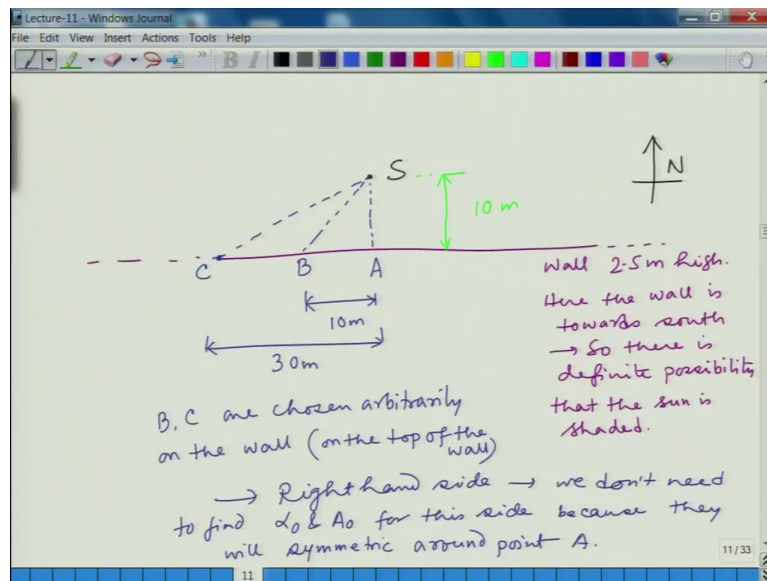 Lecture-11 - Windows Journal
File Edit View Insert Actions Tools Help
B I
S
10 m
N
C B A
10m
30m
Wall 2.5m high.
Here the wall is
towards south
→ So there is
definite possibility
that the sun is
shaded.
B, C are chosen arbitrarily
on the wall (on the top of the
wall)
→ Right hand side → we don't need
to find α0 & A0 for this side because they
will symmetric around point A.
11/33
11